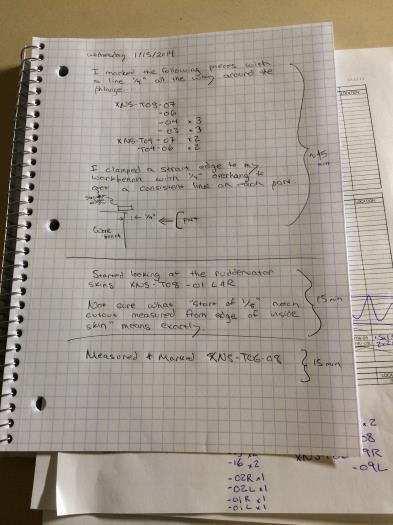 Wednesday 1/15/2014
I marked the following pieces with
a line 1/4" all the way around the
phlange.
XNS-T08-07
-06
-04 x 3
-03 x 3
XNS-T04-07 x2
T04-06 x2
I clamped a strait edge to my
workbench with 1/4" overhang to
get a consistent line on each part.
← 1/4" ← part
Work
bench
~45
min
Started looking at the ruddervator
skins XNS-T08-01 L&R
Not sure what "start of 1/8" notch
cutout measured from edge of inside
skin" means exactly
15 min
Measured + Marked XNS-T06-08
15 min
LOCATION
LOCATION
x2
08
-09R
-09L
-16 x2
-02R x1
-02L x1
-01R x1
-01L x1